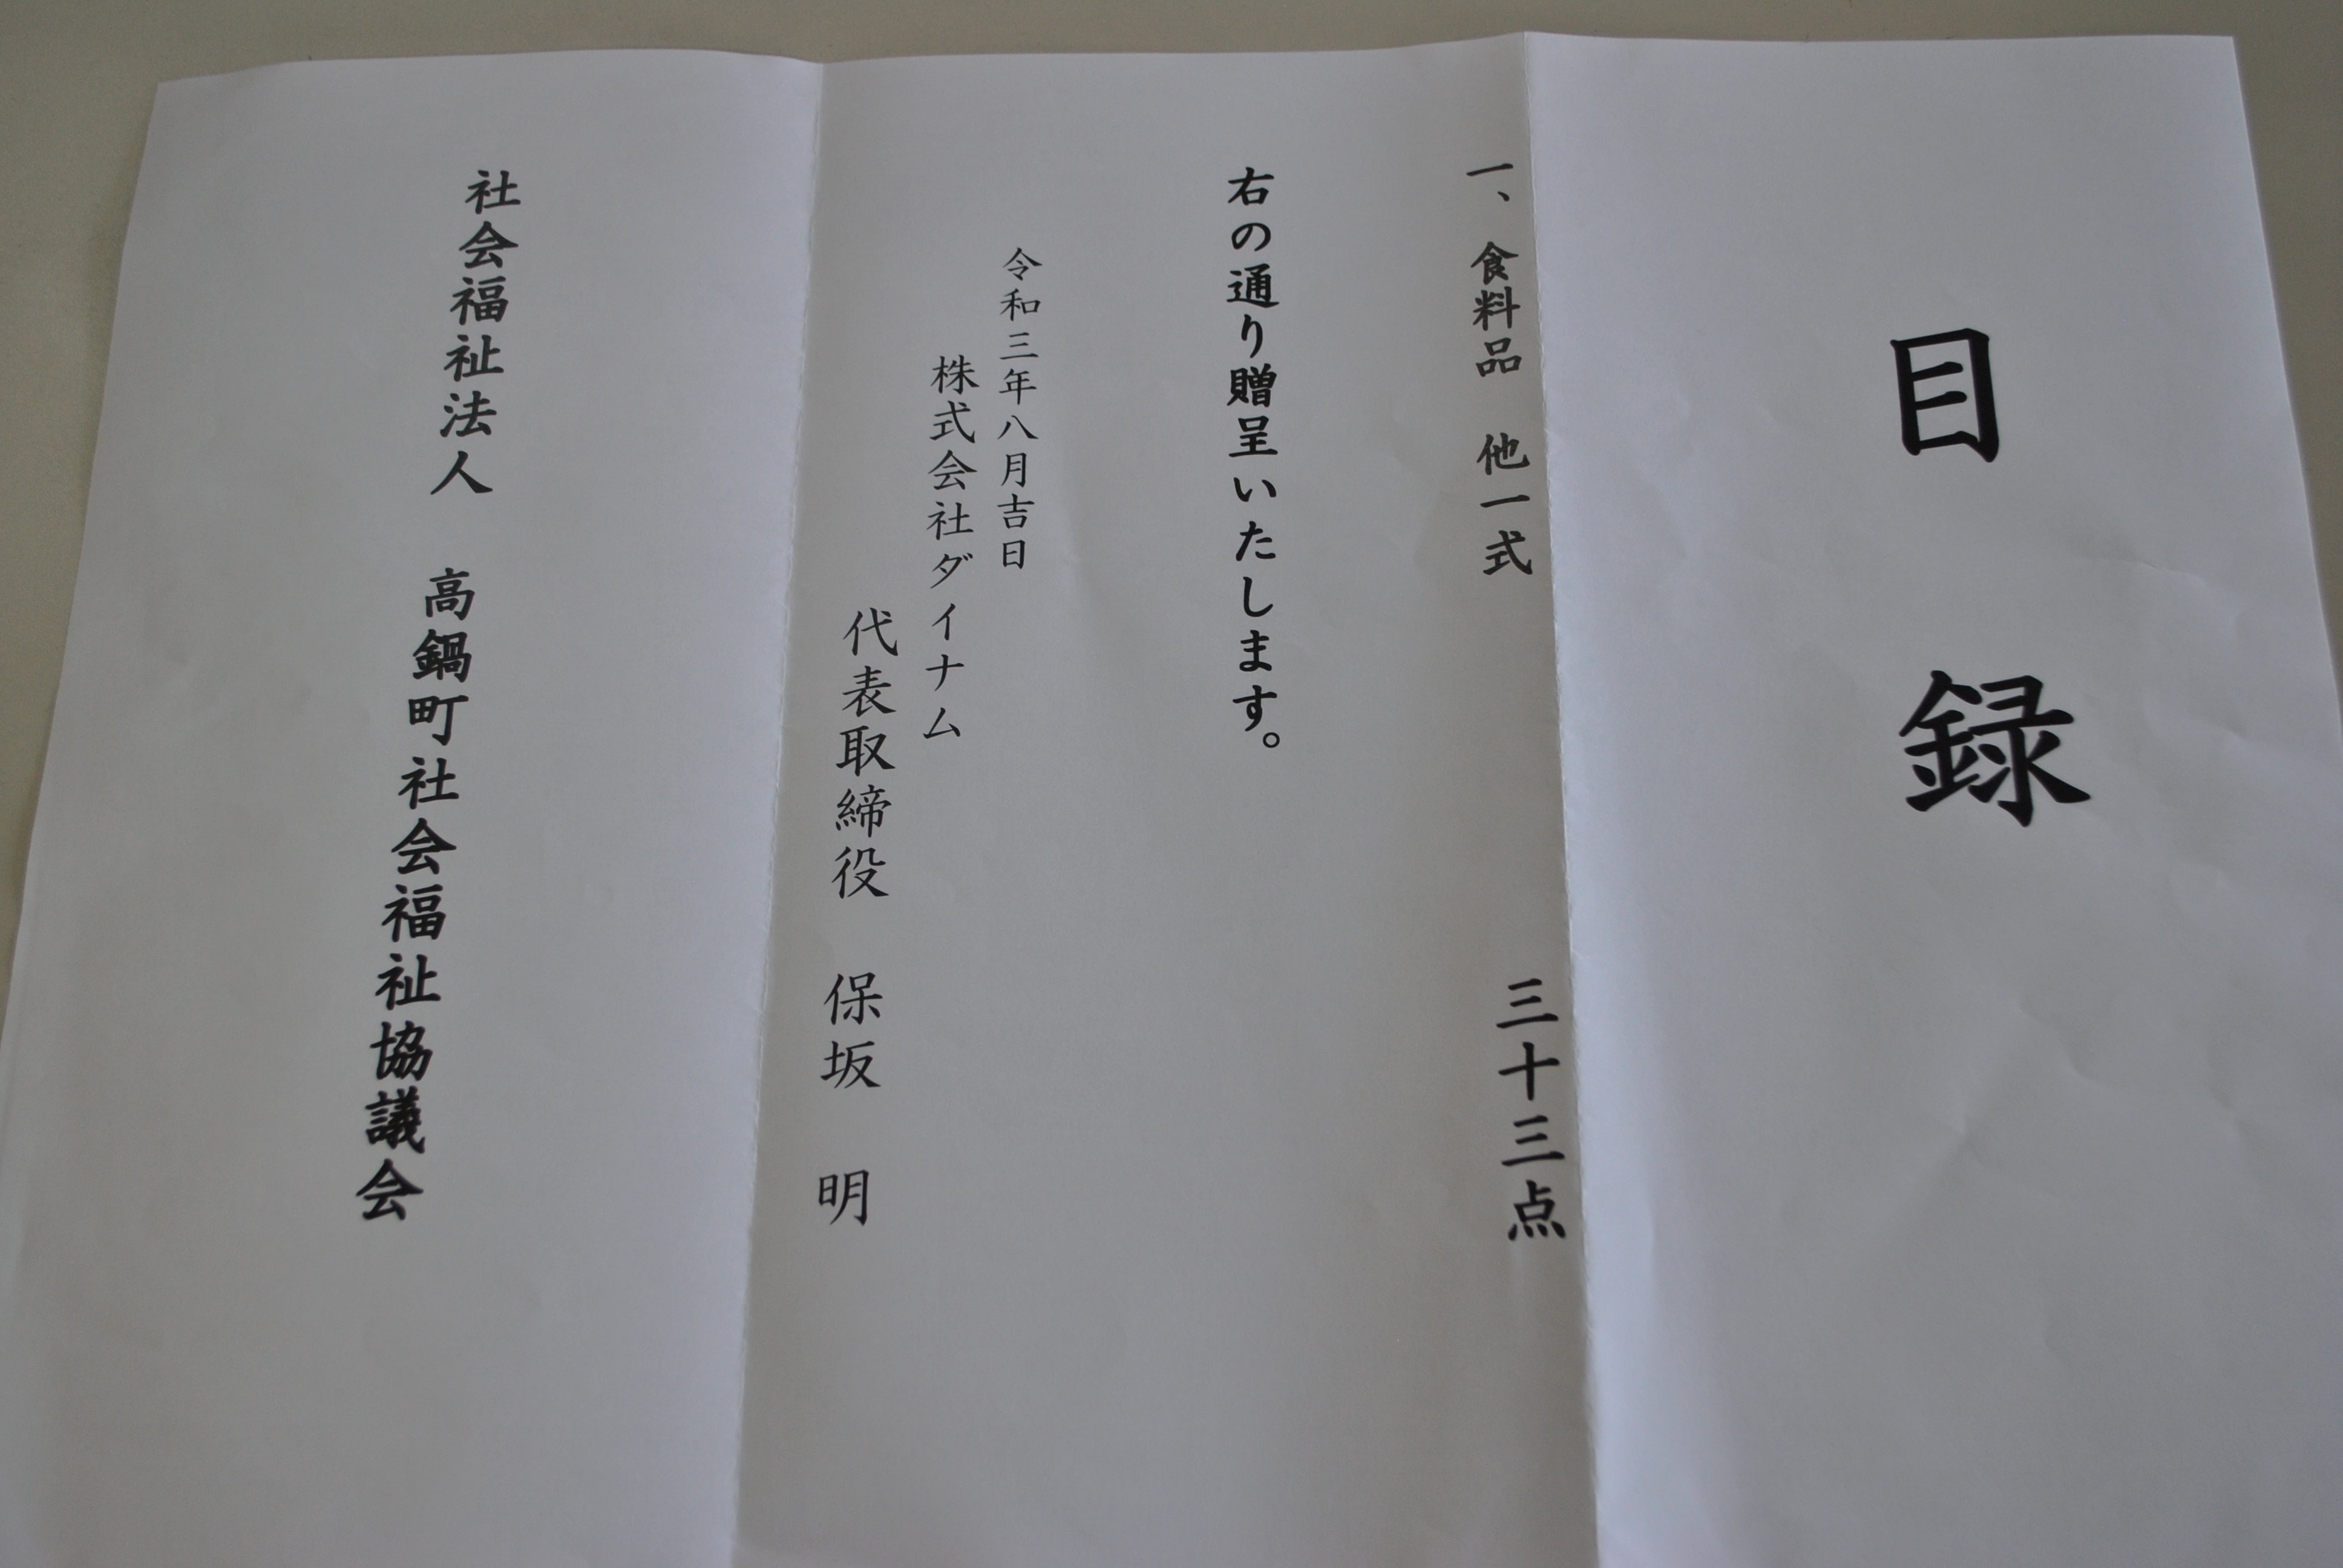 目録
一、食料品 他一式 三十三点
右の通り贈呈いたします。
令和三年八月吉日
株式会社ダイナム
代表取締役 保坂 明
社会福祉法人 高鍋町社会福祉協議会